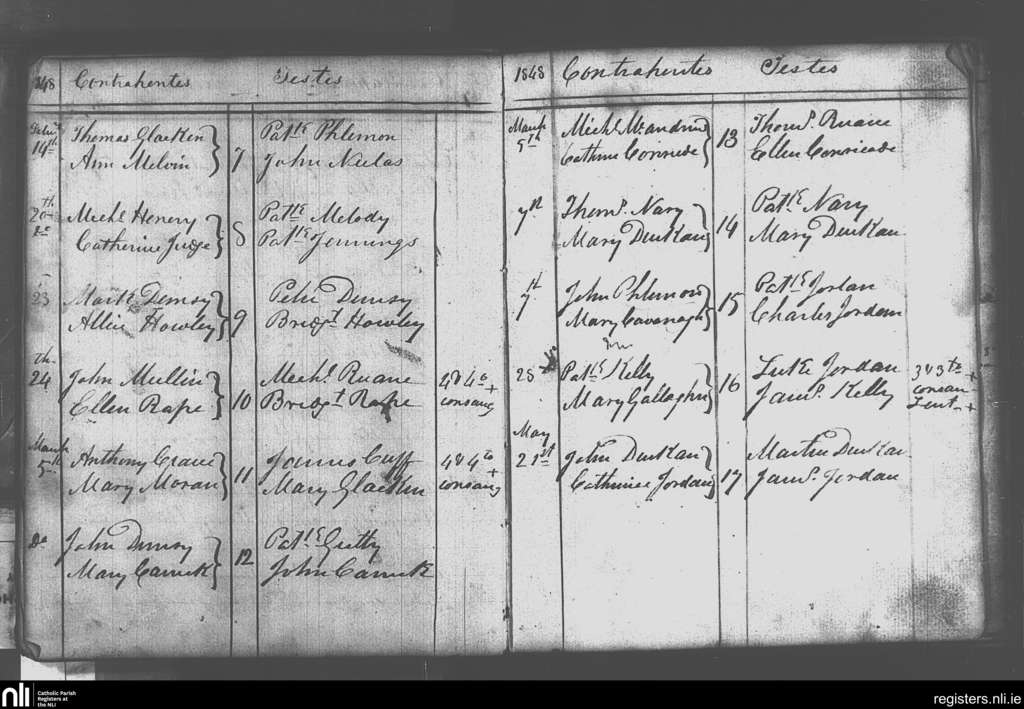 1848 Contrahentes Testes
Feb.y 14th Thomas Glacken 7 Patk Phlemon
Ann Melvin John Naclas
20th Michl Henery 8 Patk Melody
Catherine Judge Patk Jennings
23 Mark Demsy 9 Peter Demsy
Allin Howley Bridgt Howley
24th John Mullin 10 Michl Ruane 4 & 4o +
Ellen Rape Bridgt Rape consang
March 5th Anthony Crane 11 James Cuff 4 & 4to +
Mary Moran Mary Glacken consang
Do John Demsy 12 Patk Getty
Mary Carrick John Carrick
1848 Contrahentes Testes
March 5th Michl McAndrew 13 Thoms. Ruane
Cathrine Conricde Ellen Conricade
7th Thoms. Nary 14 Patk Nary
Mary Dunkan Mary Dunkan
7th John Phlemon 15 Patk Jordan
Mary Cavanagh Charles Jordan
28 Patk Kelly 16 Luke Jordan 3 & 3to +
Mary Gallagher Jams. Kelly consan
May 21st John Dunkan 17 Martin Dunkan
Catherine Jordan Jams. Jordan
nli Catholic Parish
Registers at
the NLI
registers.nli.ie